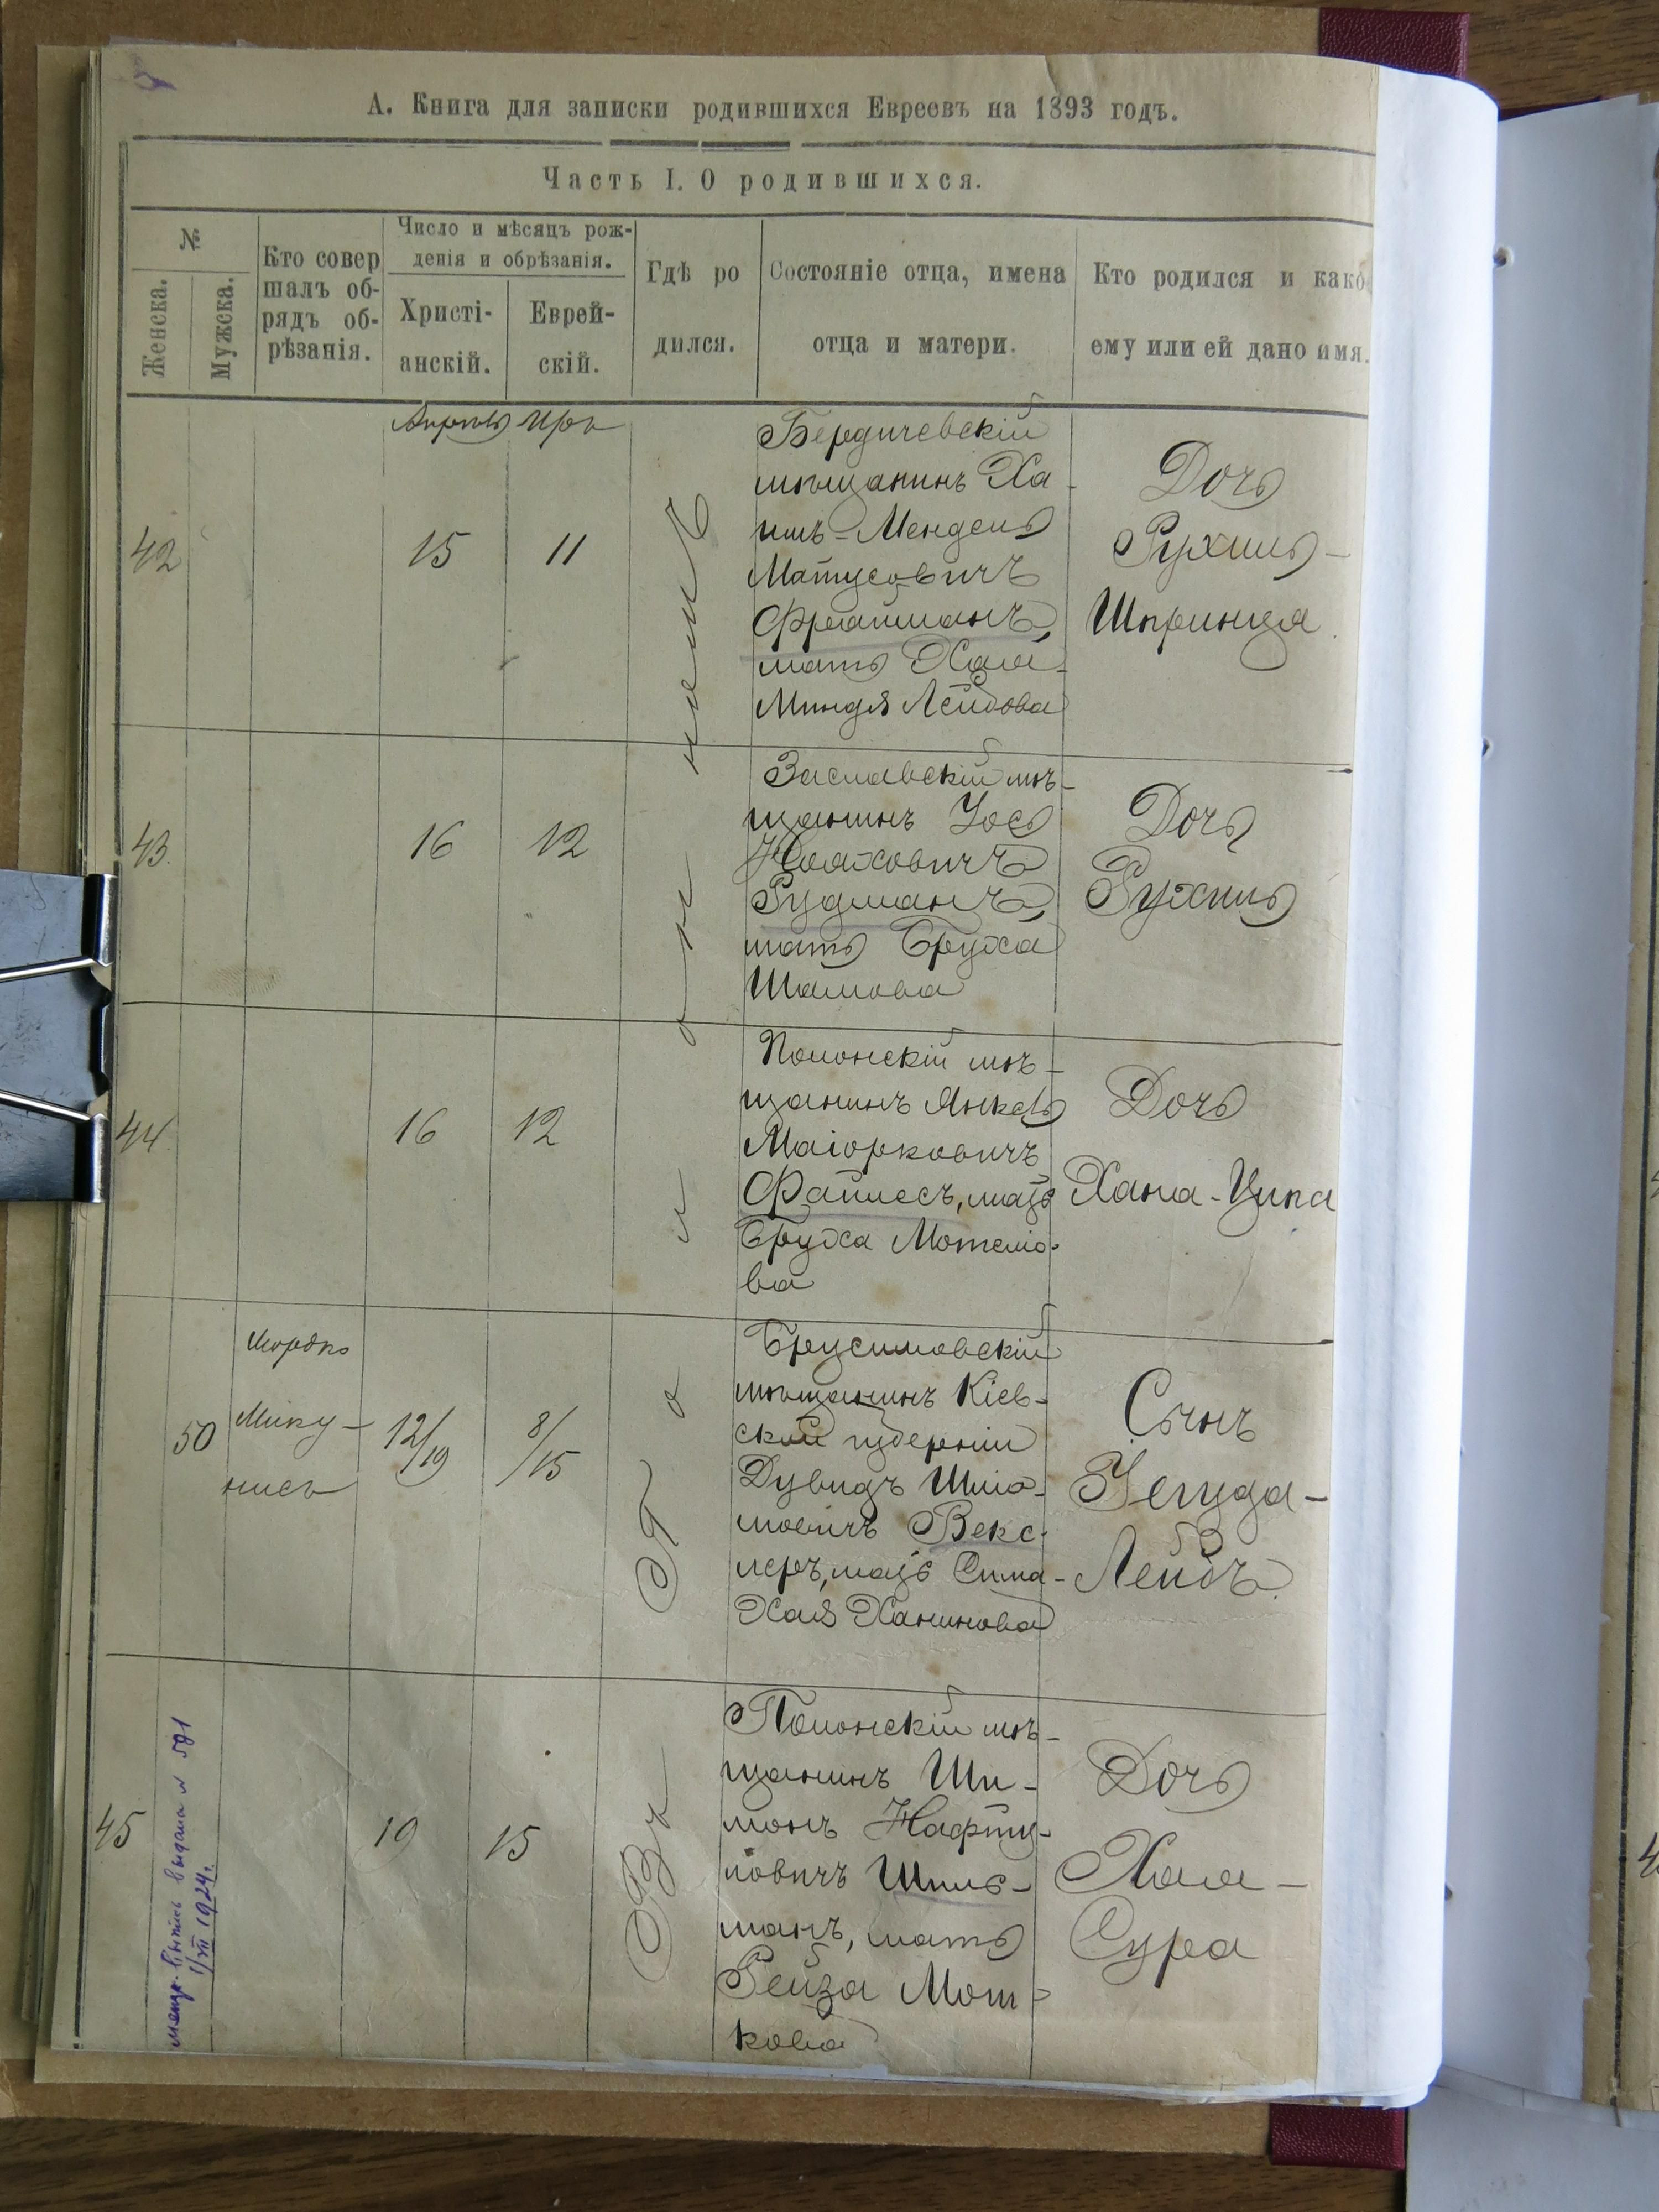 А. Книга для записки родившихся Евреевъ на 1893 годъ.
Часть I. О родившихся.
№
Женска.
Мужска.
Кто совер
шалъ об-
рядъ об-
рѣзанія.
Число и мѣсяцъ рож-
денія и обрѣзанія.
Христі-
анскій.
Еврей-
скій.
Гдѣ ро
дился.
Состояніе отца, имена
отца и матери.
Кто родился и како
ему или ей дано имя.
Апрель
Иръ
Въ Полонномъ
42
15
11
Бердичевскій
мѣщанинъ Ха
имъ-Мендель
Матусовичъ
Фрайманъ,
мать Хая-
Миндя Лейбова
Дочь
Рухль-
Шпринця
43
16
12
Заславскій мѣ-
щанинъ Іось
Нояховичъ
Рудманъ,
мать Бруха
Шаиова
Дочь
Рухль
44
16
12
Полонскій мѣ-
щанинъ Янкель
Маіорковичъ
Файнесъ, мать
Бруха Мотелю-
ва
Дочь
Хана-Ципа
50
Мордко
Мику-
нисъ
12/19
8/15
Брусиловскій
мѣщанинъ Кіев-
ской губерніи
Дувидъ Шліо-
мовичъ Векс-
леръ, мать Сима-
Хая Ханинова
Сынъ
Іегуда-
Лейбъ.
45
19
15
Полонскій мѣ-
щанинъ Ши-
монъ Нафту-
ловичъ Шпиг-
манъ, мать
Рейза Мош-
кова
Дочь
Хая-
Сура
метр. выпись выдана № 591
1/VII 1924г.